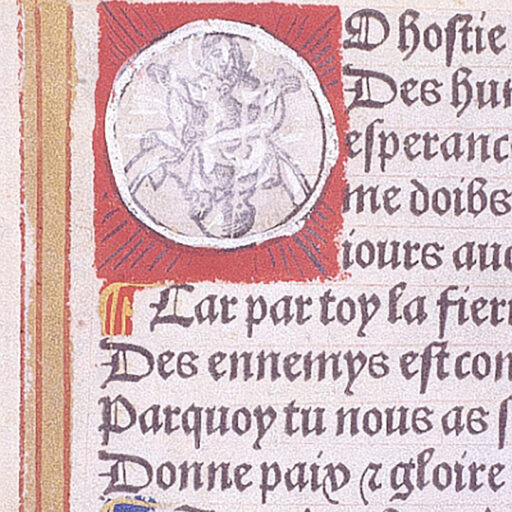 O hostie
Des hu
esperanc
me doibs
iours au
Car par toy la fier
Des ennemys est con
Parquoy tu nous as s
Donne paix ⁊ gloire